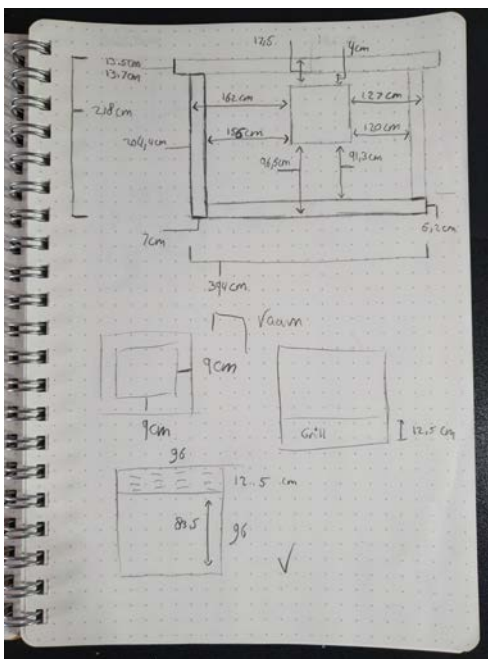 17.5 4cm
13.5cm
13.7cm
162cm 127cm
218cm
204,4cm 155cm 120cm
96,5cm 91,3cm
7cm 5,2cm
394cm
Vaam
9cm
9cm
Grill 12.5 cm
96
12.5 cm
83.5 96